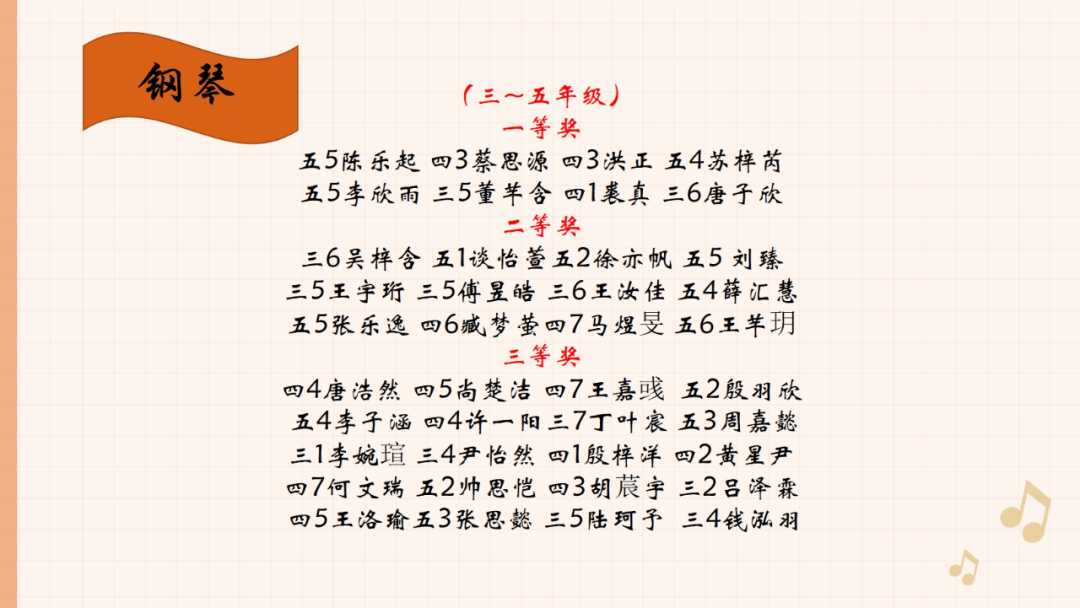 钢琴
（三～五年级）
一等奖
五5陈乐起 四3蔡思源 四3洪正 五4苏梓芮
五5李欣雨 三5董芊含 四1裘真 三6唐子欣
二等奖
三6吴梓含 五1谈怡萱五2徐亦帆 五5 刘臻
三5王宇珩 三5傅昱皓 三6王汝佳 五4薛汇慧
五5张乐逸 四6臧梦萤四7马煜旻 五6王芊玥
三等奖
四4唐浩然 四5尚楚洁 四7王嘉彧 五2殷羽欣
五4李子涵 四4许一阳三7丁叶宸 五3周嘉懿
三1李婉瑄 三4尹怡然 四1殷梓洋 四2黄星尹
四7何文瑞 五2帅思恺 四3胡莀宇 三2吕泽霖
四5王洛瑜五3张思懿 三5陆珂予 三4钱泓羽